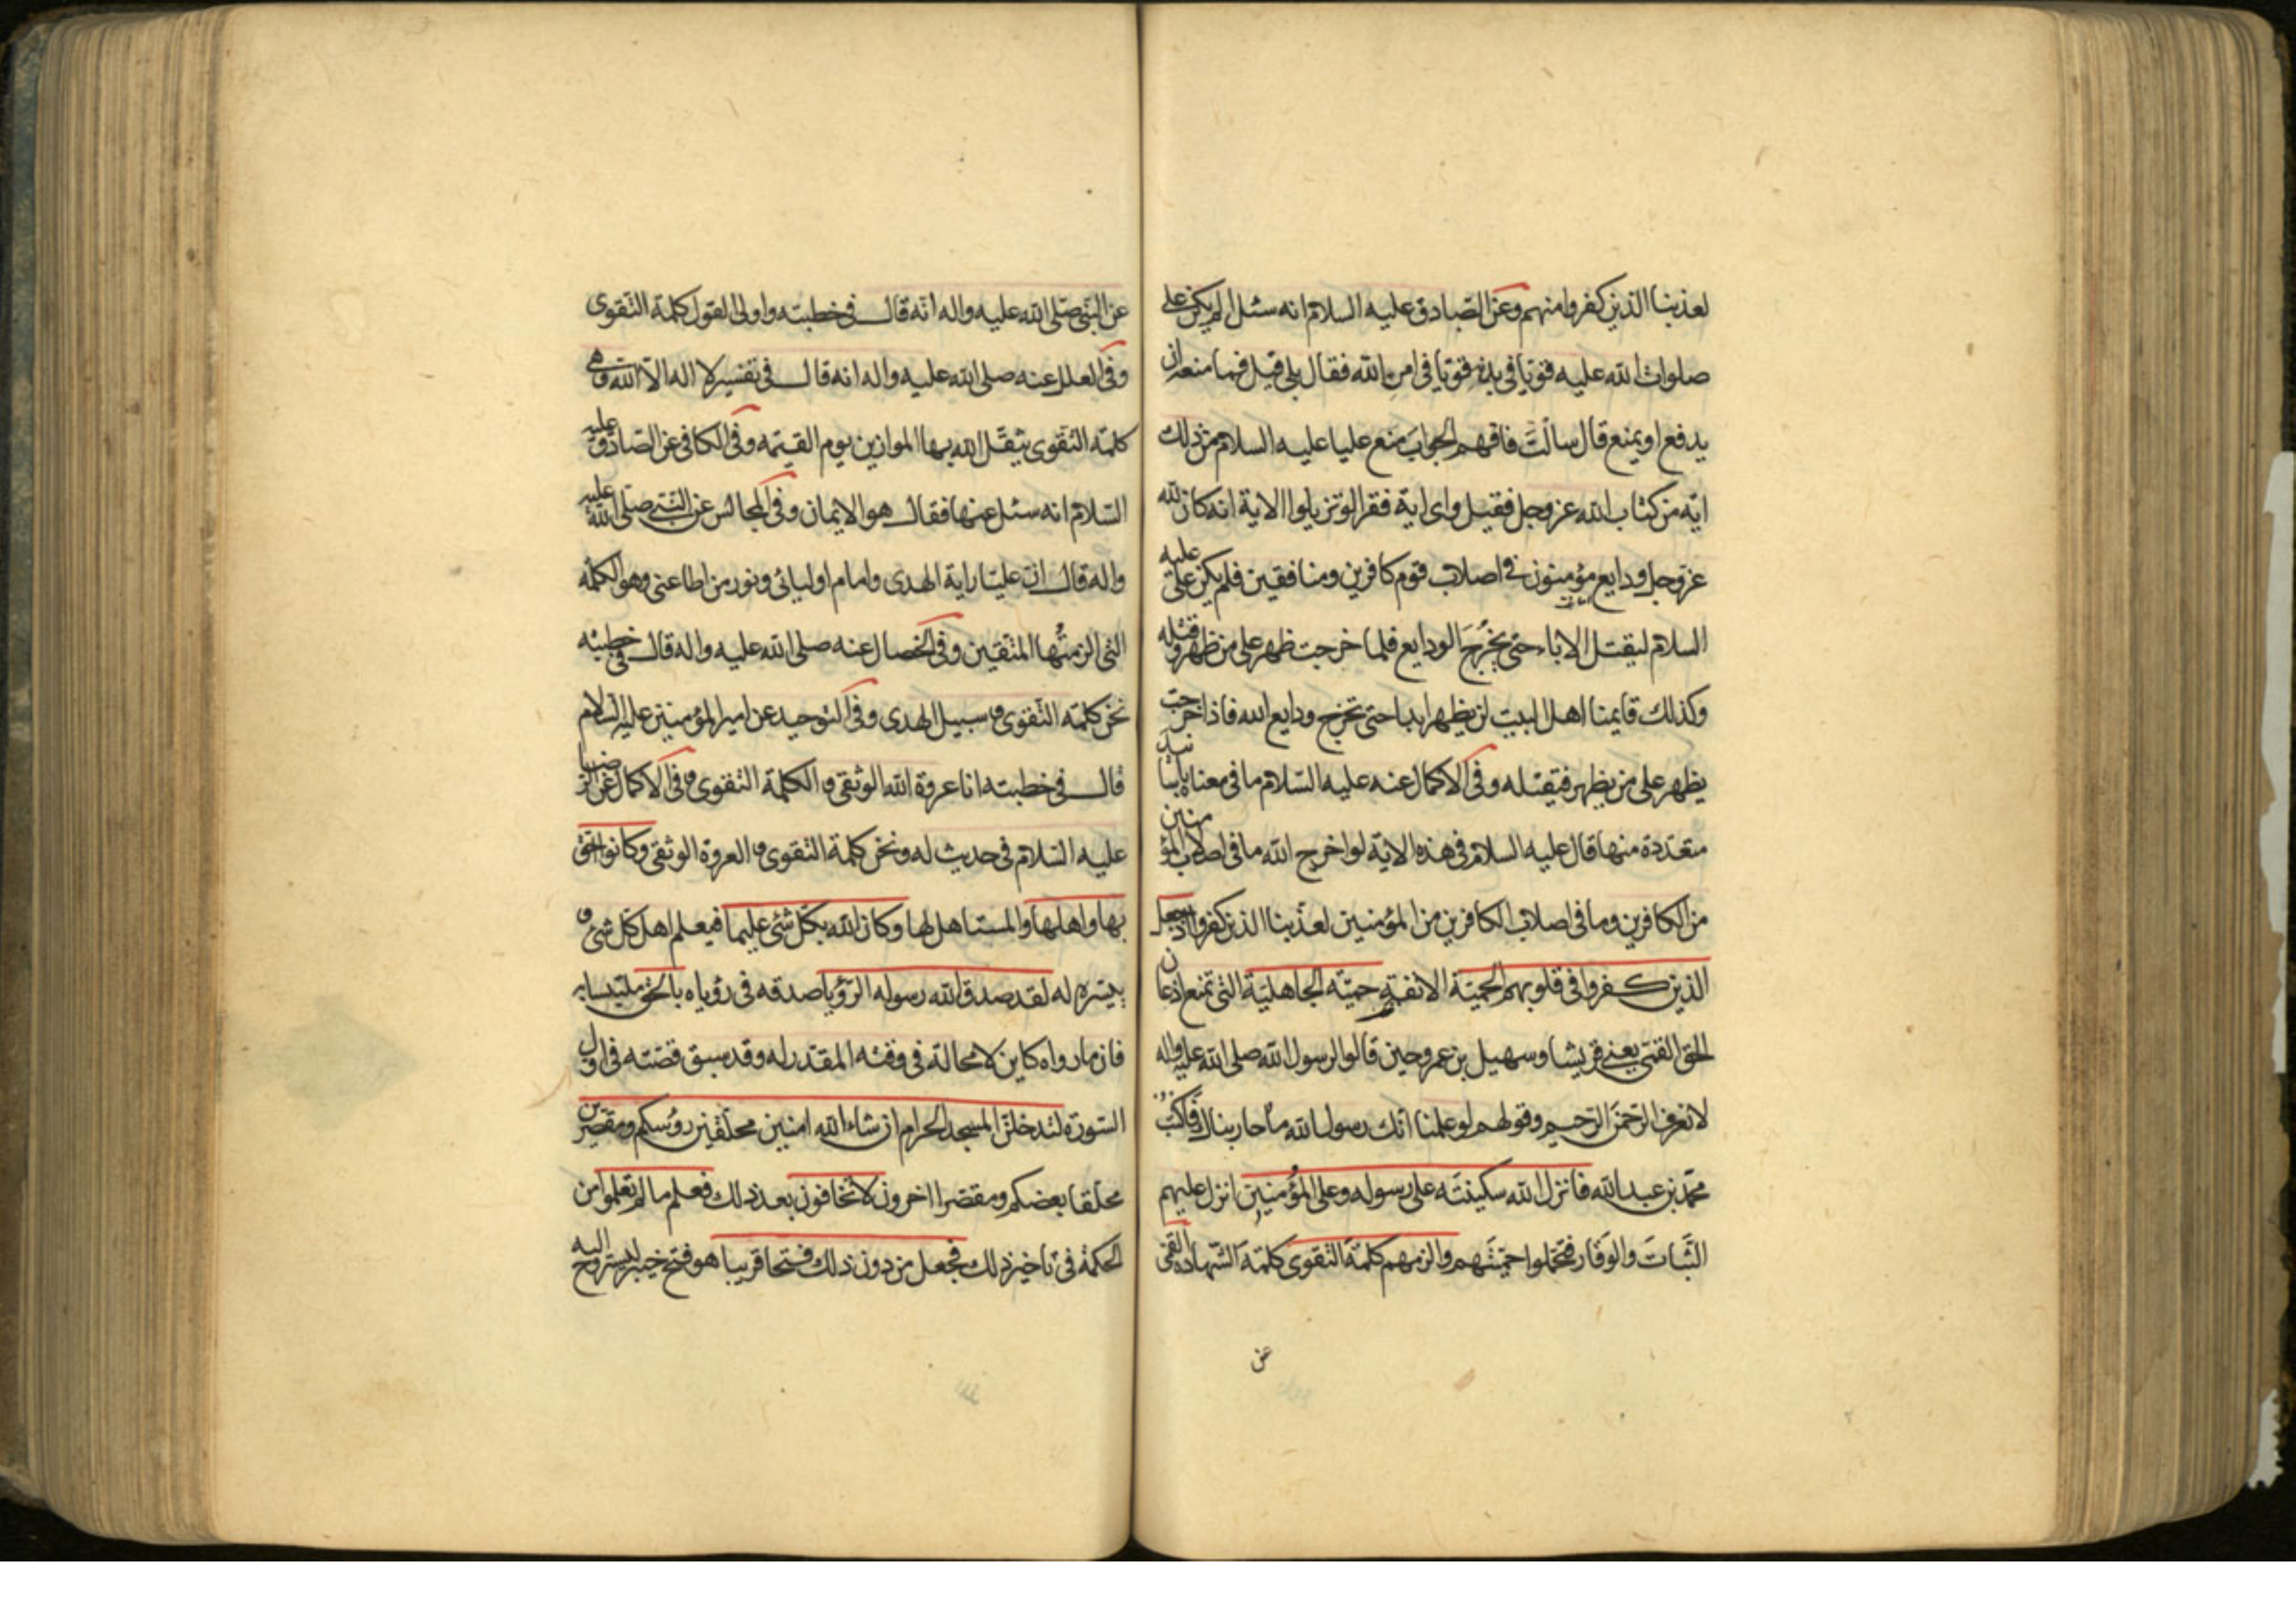 لعذبنا الذين كفروا منهم وعن الصادق عليه السلام انه سئل الم يكن على
صلوات الله عليه قويا في بدنه قويا في امر الله فقال بلى قيل فما منعه ان
يدفع او يمنع قال سالت فافهم الجواب منع عليا عليه السلام من ذلك
اية من كتاب الله عز وجل فقيل واى اية فقرا لو تزيلوا الاية انه كان لله
عز وجل ودايع مؤمنون في اصلاب قوم كافرين ومنافقين فلم يكن على عليه
السلام ليقتل الاباء حتى يخرج الودايع فلما خرجت ظهر على من ظهر وقتله
وكذلك قايمنا اهل البيت لن يظهر ابدا حتى تخرج ودايع الله فاذا خرجت
يظهر على من يظهر فيقتله وفى الاكمال عنه عليه السلام ما في معناه باسانيد
متعددة منها قال عليه السلام في هذه الاية لو اخرج الله ما في اصلاب المؤمنين
من الكافرين وما في اصلاب الكافرين من المؤمنين لعذبنا الذين كفروا اذ جعل
الذين كفروا في قلوبهم الحمية الانفة حمية الجاهلية التي تمنع اذعان
الحق القمى يعنى قريشا وسهيل بن عمرو حين قالوا لرسول الله صلى الله عليه واله
لا نعرف الرحمن الرحيم وقولهم لو علمنا انك رسول الله ما حاربناك فاكتب
محمد بن عبد الله فانزل الله سكينته على رسوله وعلى المؤمنين انزل عليهم
الثبات والوقار فتحملوا حميتهم والزمهم كلمة التقوى كلمة الشهادة القمى
عن
عن النبي صلى الله عليه واله انه قال في خطبته واولى القول كلمة التقوى
وفى العلل عنه صلى الله عليه واله انه قال في تفسير لا اله الا الله وهى
كلمة التقوى يثقل الله بها الموازين يوم القيمة وفى الكافى عن الصادق عليه
السلام انه سئل عنها فقال هو الايمان وفى المجالس عن النبي صلى الله عليه
واله قال ان عليا راية الهدى وامام اوليائى ونور من اطاعنى وهو الكلمة
التي الزمتها المتقين وفى الخصال عنه صلى الله عليه واله قال في خطبته
نحن كلمة التقوى و سبيل الهدى وفى التوحيد عن امير المؤمنين عليه السلام
قال في خطبته انا عروة الله الوثقى و الكلمة التقوى و فى الاكمال عن الرضا
عليه السلام في حديث له ونحن كلمة التقوى و العروة الوثقى وكانوا احق
بها واهلها والمستاهل لها وكان الله بكل شئ عليما فيعلم اهل كل شئ و
ييسره له لقد صدق الله رسوله الرؤيا صدقه في رؤياه بالحق ملتبسا به
فان ما رواه كاين لا محالة في وقته المقدر له وقد سبق قصته في اول
السورة لتدخلن المسجد الحرام ان شاء الله امنين محلقين رؤسكم ومقصرين
محلقا بعضكم ومقصرا اخرون لا تخافون بعد ذلك فعلم ما لم تعلموا من
الحكمة في تاخير ذلك فجعل من دون ذلك فتحا قريبا هو فتح خيبر ليستروح اليه